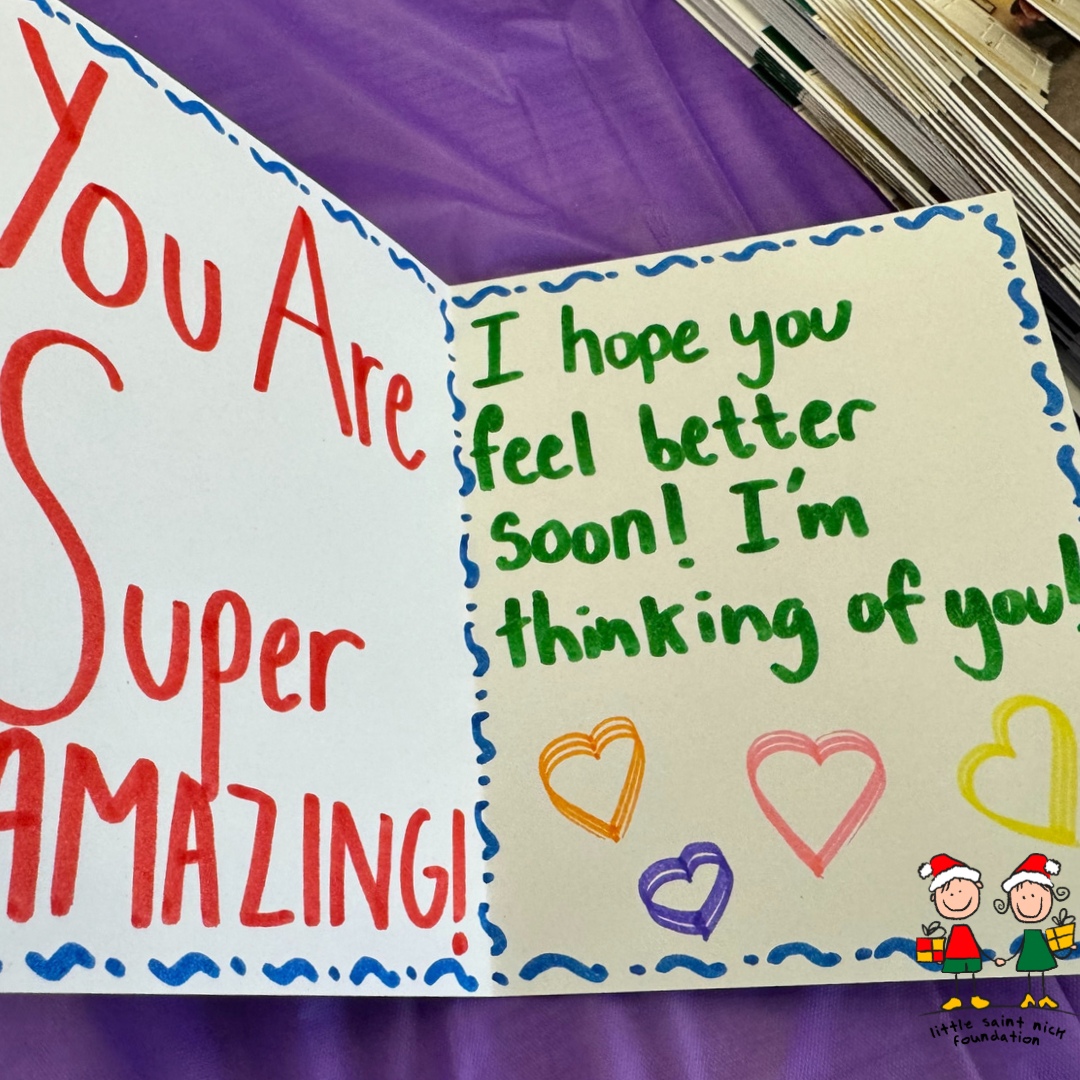 You Are
Super
AMAZING!
I hope you
feel better
soon! I'm
thinking of you!
little saint nick
foundation